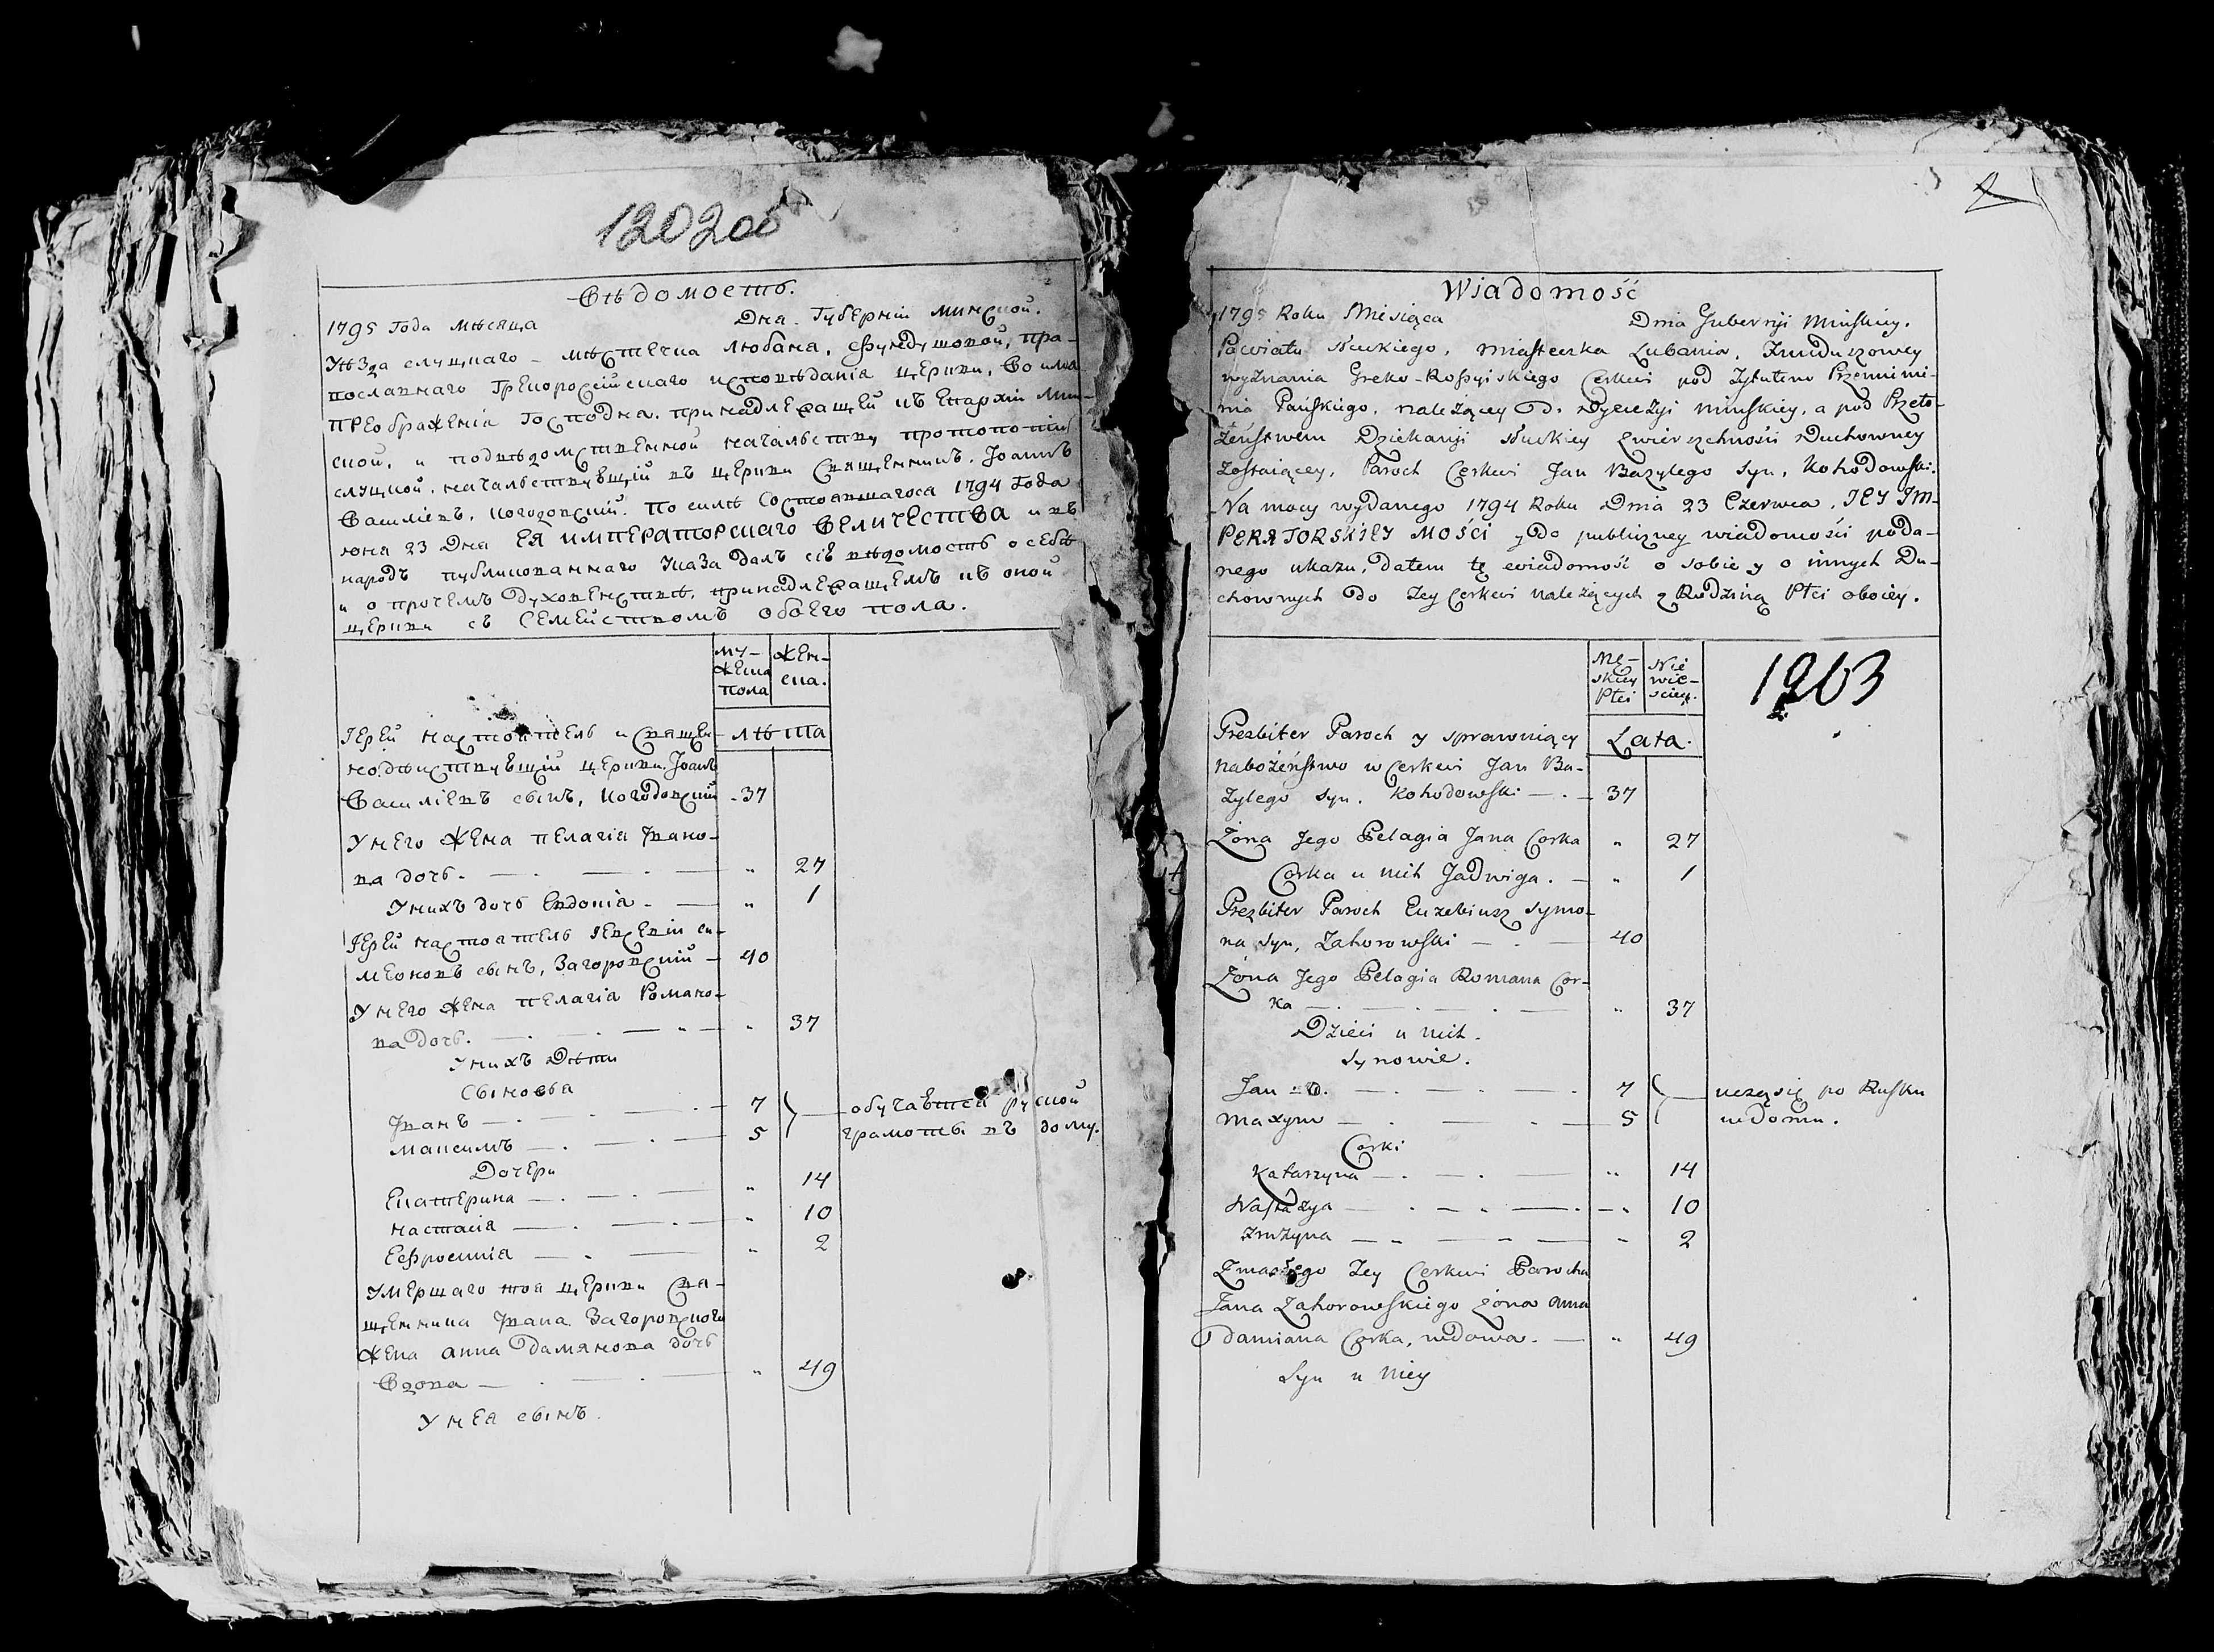 120200
Вѣдомость.
1795 Года мѣсяца Дня. Губерніи Минской.
Уѣзда слуцкаго – мѣстечка Любаня, Фундушовой, Пра-
вославнаго Грекороссійскаго исповѣданія церкви, Во имя
Преображенія Господня. принадлежащей къ Епархіи Мин-
ской, и подвѣдомственной начальству протопопіи
слуцкой. начальствующій въ церкви Священникъ. Іоаннъ
Василіевъ, Когодовскій. По силѣ Состоявшагося 1794 Года
юня 23 Дня ЕЯ ИМПЕРАТОРСКАГО ВЕЛИЧЕСТВА и въ
народъ публикованнаго Указа далъ сіе вѣдомость о себѣ
и о прочемъ Духовенствѣ, принадлежащемъ къ оной
церкви съ Семействомъ обоего пола.
му-
жеска
пола
жен-
ска.
лѣта
Іерей настоятель и Священ-
нодѣйствующій церкви Іоаннъ
Василіевъ сынъ, Когодовскій - 37
У него жена Пелагія Ивано-
ва дочь. „ 27
У нихъ дочь Евдокія - „ 1
Іерей настоятель Іевсевій си-
меоновъ сынъ, Загоровскій - 40
У него жена Пелагія Романо-
ва дочь. „ 37
У нихъ Дѣти
Сыновья
Иванъ 7 обучаются руской
Максимъ 5 грамоты въ дому.
Дочери
Екатерина „ 14
настасія „ 10
Ефросинія „ 2
Умершаго тоя церкви Свя-
щенника Ивана Загоровского
жена анна Дамянова дочь
Вдова „ 49
У нея сынъ.
Wiadomość
1795 Roku Miesiąca Dnia Gubernji Minskiey.
Powiatu słuckiego, miasteczka Lubania, Funduszowey
wyznania Greko-Rossyiskiego Cerkwi pod Tytułem Przemieni-
nia Pańskiego, należącey do Dyecezyi minskiey, a pod Przeło-
żeństwem Dziekanji słuckiey zwierzchności Duchowney
zostaiącey, Paroch Cerkwi Jan Bazylego syn, Kohodowski.
Na mocy wydanego 1794 Roku Dnia 23 Czerwca, JEY IM-
PERATORSKIEY MOŚCI y do publiczney wiadomości poda-
nego ukazu, datem tę wiadomość o sobie y o innych Du-
chownych do tey Cerkwi należących z Rodziną Płci oboiey.
Mę-
skiey
Płci
Nie
wie-
sciey.
1263
Lata.
Prezbiter Paroch y sprawuiący
nabożeństwo w Cerkwi Jan Ba-
zylego syn. Kohodowski 37
Żona Jego Pelagia Jana Corka „ 27
Corka u nich Jadwiga. „ 1
Prezbiter Paroch Euzebiusz Symo-
na syn, Zahorowski 40
Żona Jego Pelagia Romana Cor-
ka „ 37
Dzieci u nich.
synowie.
Jan 7 uczą się po Rusku
Maxym 5 w domu.
Corki
Katarzyna „ 14
Nastazya „ 10
2
Zmarłego tey Cerkwi Parocha
Jana Zahorowskiego żona anna
damiana Corka, wdowa. „ 49
Syn u niey